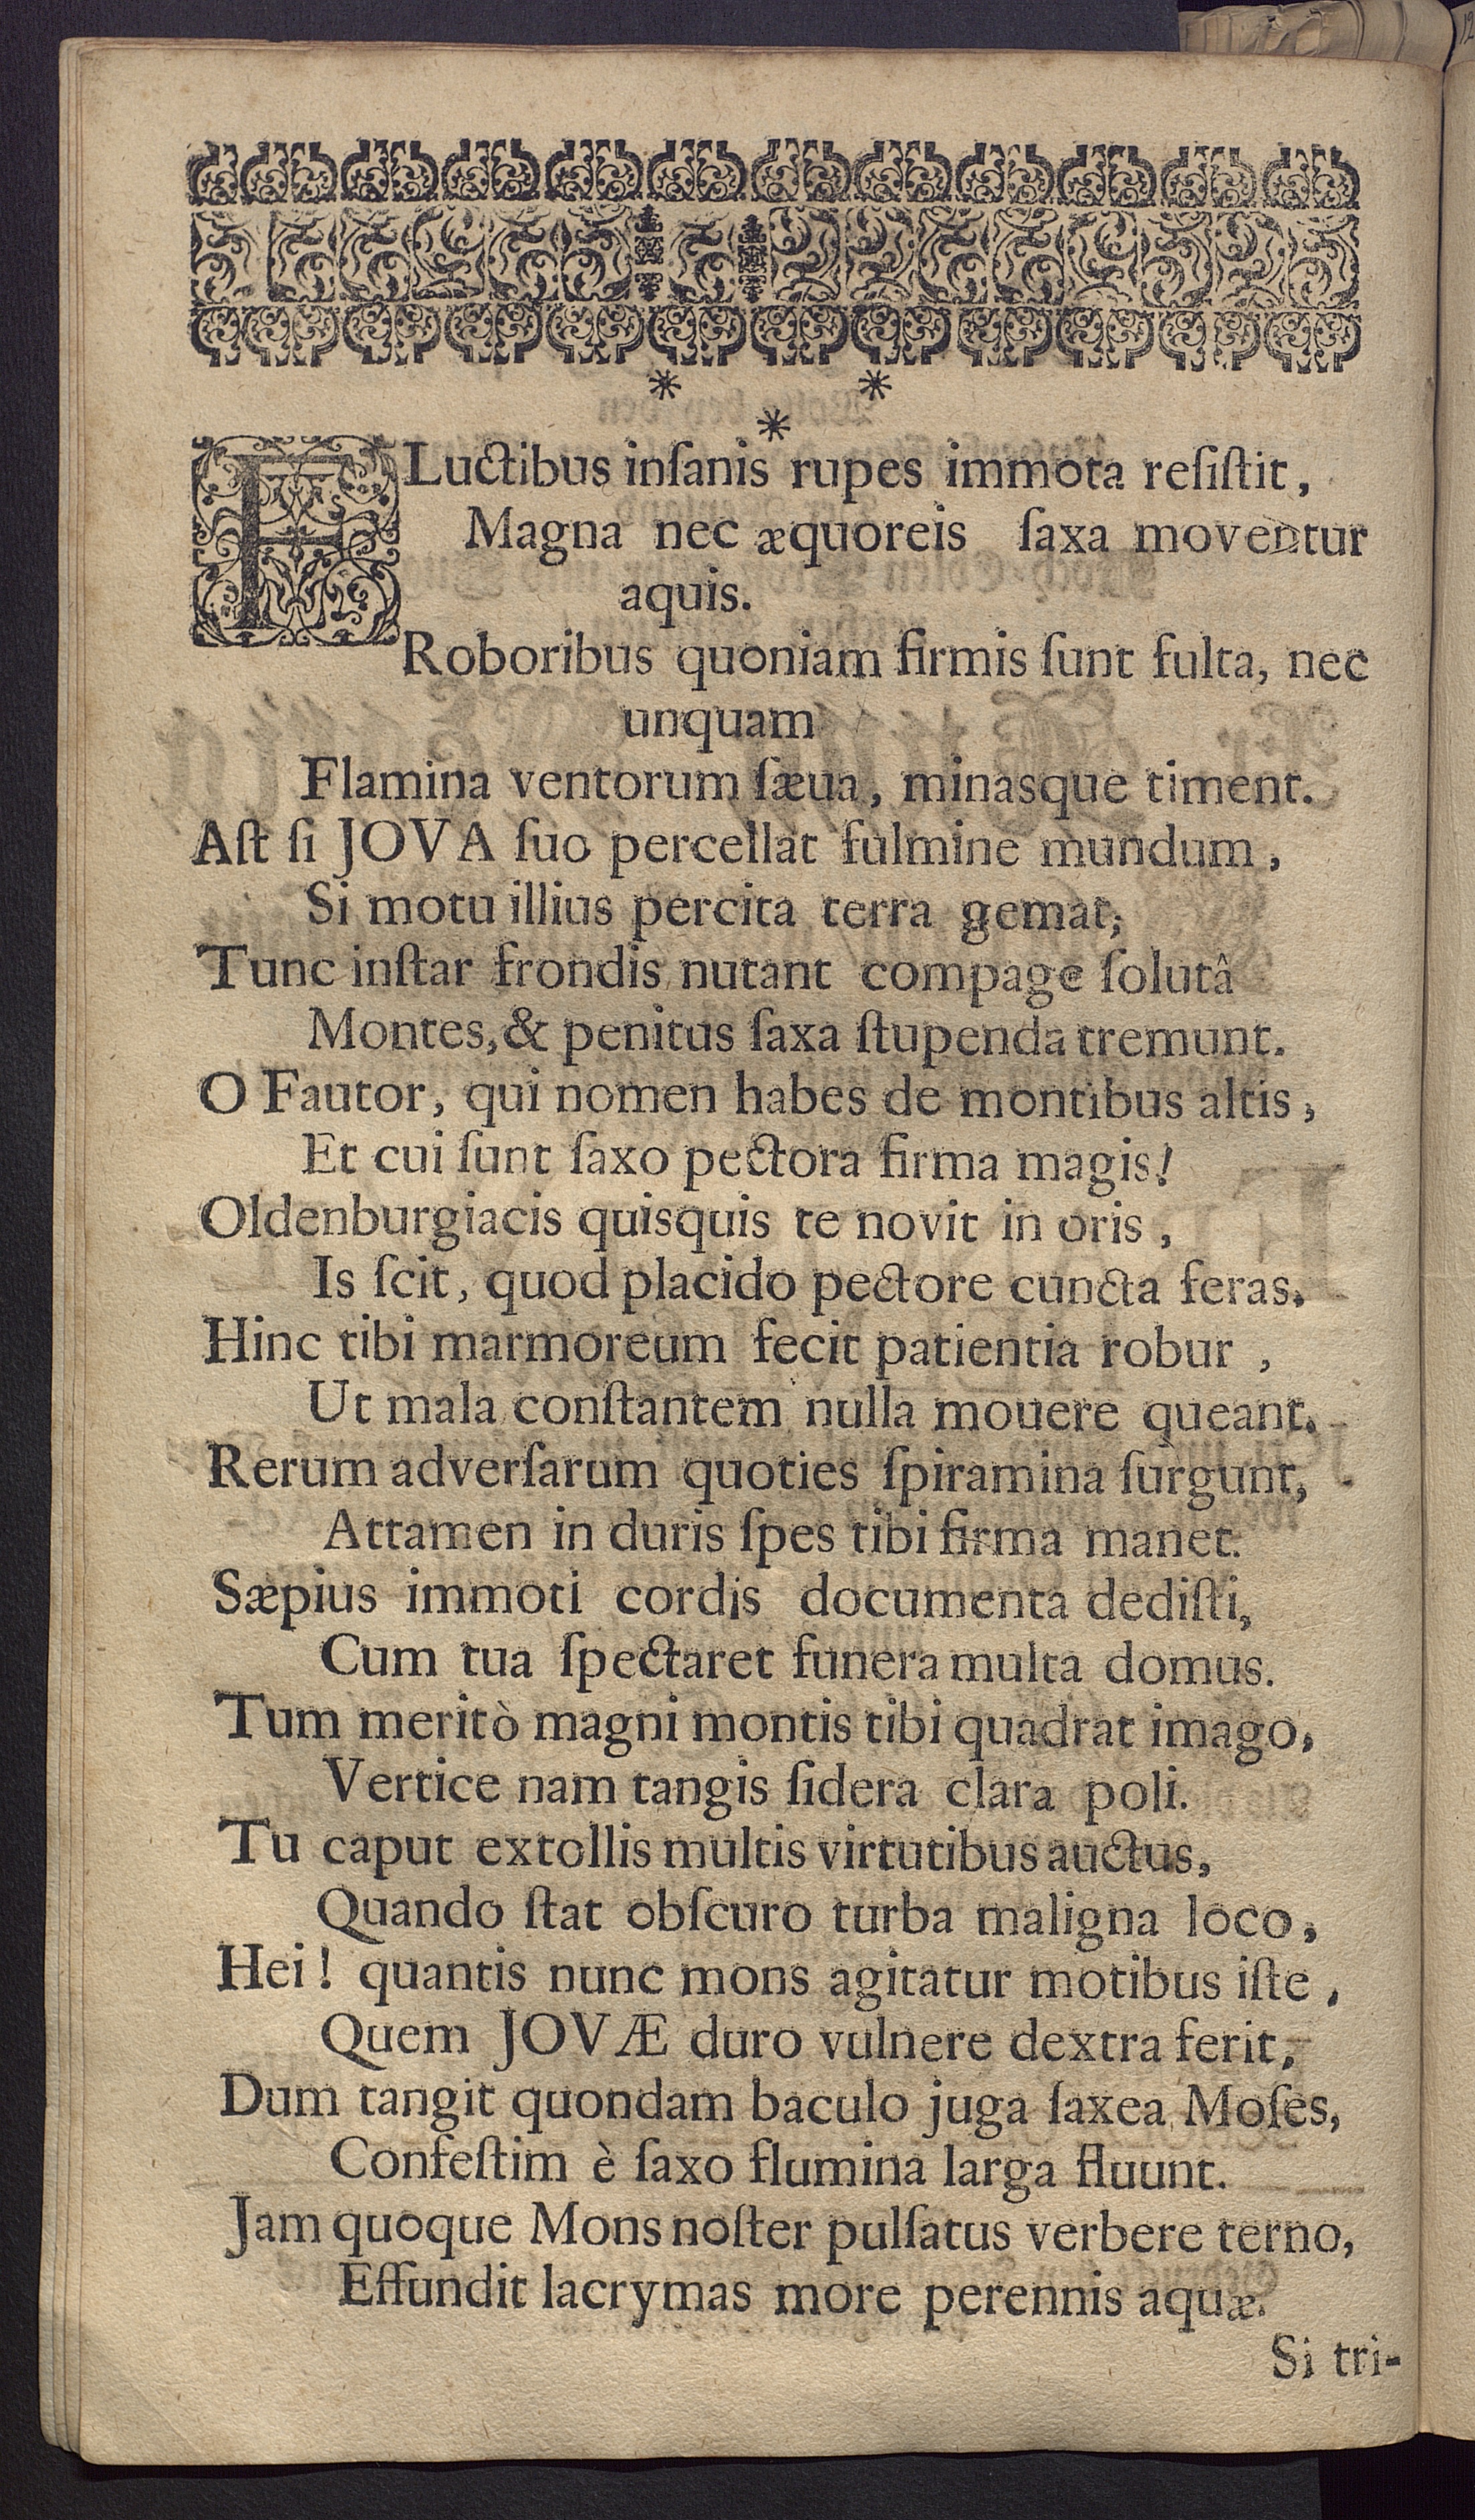 * *
*
FLuctibus inſanis rupes immota reſiſtit,
Magna nec æquoreis ſaxa moventur
aquis.
Roboribus quoniam firmis ſunt fulta, nec
unquam
Flamina ventorum ſæua, minasque timent.
Aſt ſi JOVA ſuo percellat fulmine mundum,
Si motu illius percita terra gemat;
Tunc inſtar frondis nutant compage ſolutâ
Montes, & penitus ſaxa ſtupenda tremunt.
O Fautor, qui nomen habes de montibus altis,
Et cui ſunt ſaxo pectora firma magis!
Oldenburgiacis quisquis te novit in oris,
Is ſcit, quod placido pectore cuncta feras.
Hinc tibi marmoreum fecit patientia robur,
Ut mala conſtantem nulla mouere queant.
Rerum adverſarum quoties ſpiramina ſurgunt,
Attamen in duris ſpes tibi firma manet.
Sæpius immoti cordis documenta dediſti,
Cum tua ſpectaret funera multa domus.
Tum meritò magni montis tibi quadrat imago,
Vertice nam tangis ſidera clara poli.
Tu caput extollis multis virtutibus auctus,
Quando ſtat obſcuro turba maligna loco,
Hei! quantis nunc mons agitatur motibus iſte,
Quem JOVÆ duro vulnere dextra ferit,
Dum tangit quondam baculo juga ſaxea Moſes,
Confeſtim è ſaxo flumina larga fluunt.
Jam quoque Mons noſter pulſatus verbere terno,
Effundit lacrymas more perennis aquæ.
Si tri-